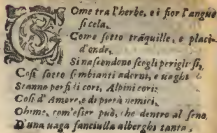 Come tra l'herbe, e i fior l'angue
si cela.
Come sotto trãquille, e placid'
onde,
Si nascondono scogli perigliosi,
Così sotto sembianti adorni, e vaghi
Stanno per li cori, Alpini cori:
Così d'Amore, e di poeti nemici,
Ohime, com'esser può, che dentro al seno
D'una vaga fanciulla alberghi tanta,